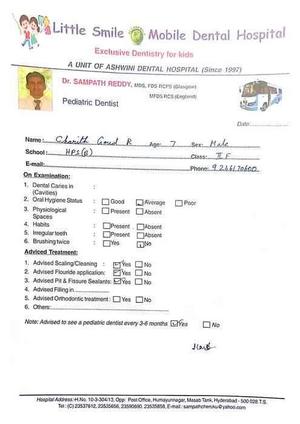 Little Smile Mobile Dental Hospital
Exclusive Dentistry for kids
A UNIT OF ASHWINI DENTAL HOSPITAL (Since 1997)
Dr. SAMPATH REDDY, MDS, FDS RCPS (Glasgow)
MFDS RCS (England)
Pediatric Dentist
Date:
Name: Charith Goud R Age: 7 Sex: Male
School: HPS(B) Class: II F
E-mail: Phone: 9246170600
On Examination:
1. Dental Caries in (Cavities) :
2. Oral Hygiene Status : Good Average Poor
3. Physiological Spaces : Present Absent
4. Habits : Present Absent
5. Irregular teeth : Present Absent
6. Brushing twice : Yes No
Adviced Treatment:
1. Advised Scaling/Cleaning : Yes No
2. Advised Flouride application: Yes No
3. Advised Pit & Fissure Sealants: Yes No
4. Advised Filling in
5. Advised Orthodontic treatment : Yes No
6. Others:
Note: Advised to see a pediatric dentist every 3-6 months Yes No
Hospital Address: H.No. 10-3-304/13, Opp. Post Office, Humayunnagar, Masab Tank, Hyderabad - 500 028 T.S.
Tel: (C) 23537612, 23535656, 23590690, 23535858, E-mail: sampathchercku@yahoo.com